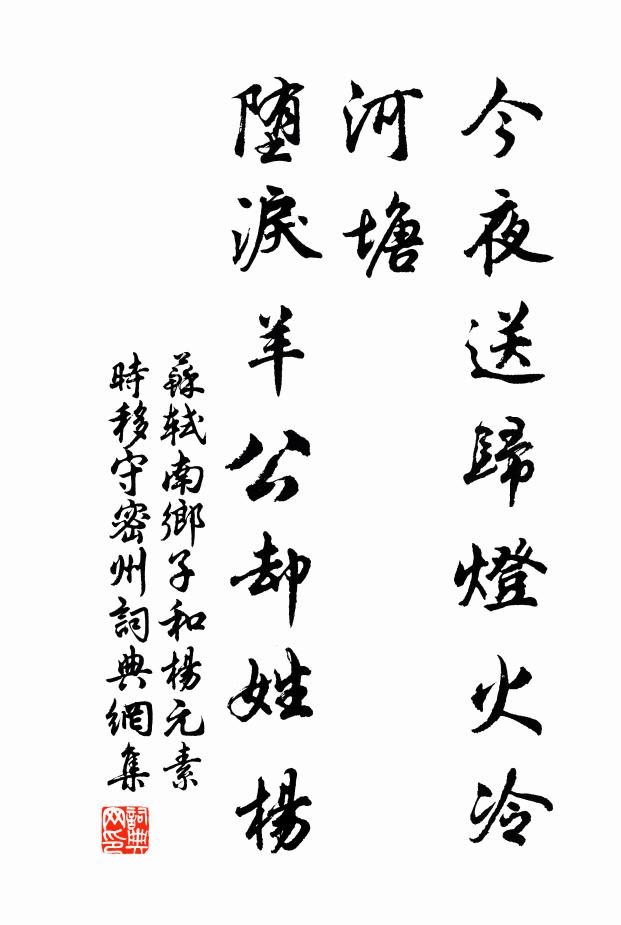 今夜送歸燈火冷
河塘
堕淚羊公却姓楊
蘇軾南鄉子和楊元素
時移守密州詞典網集
詞典
网印